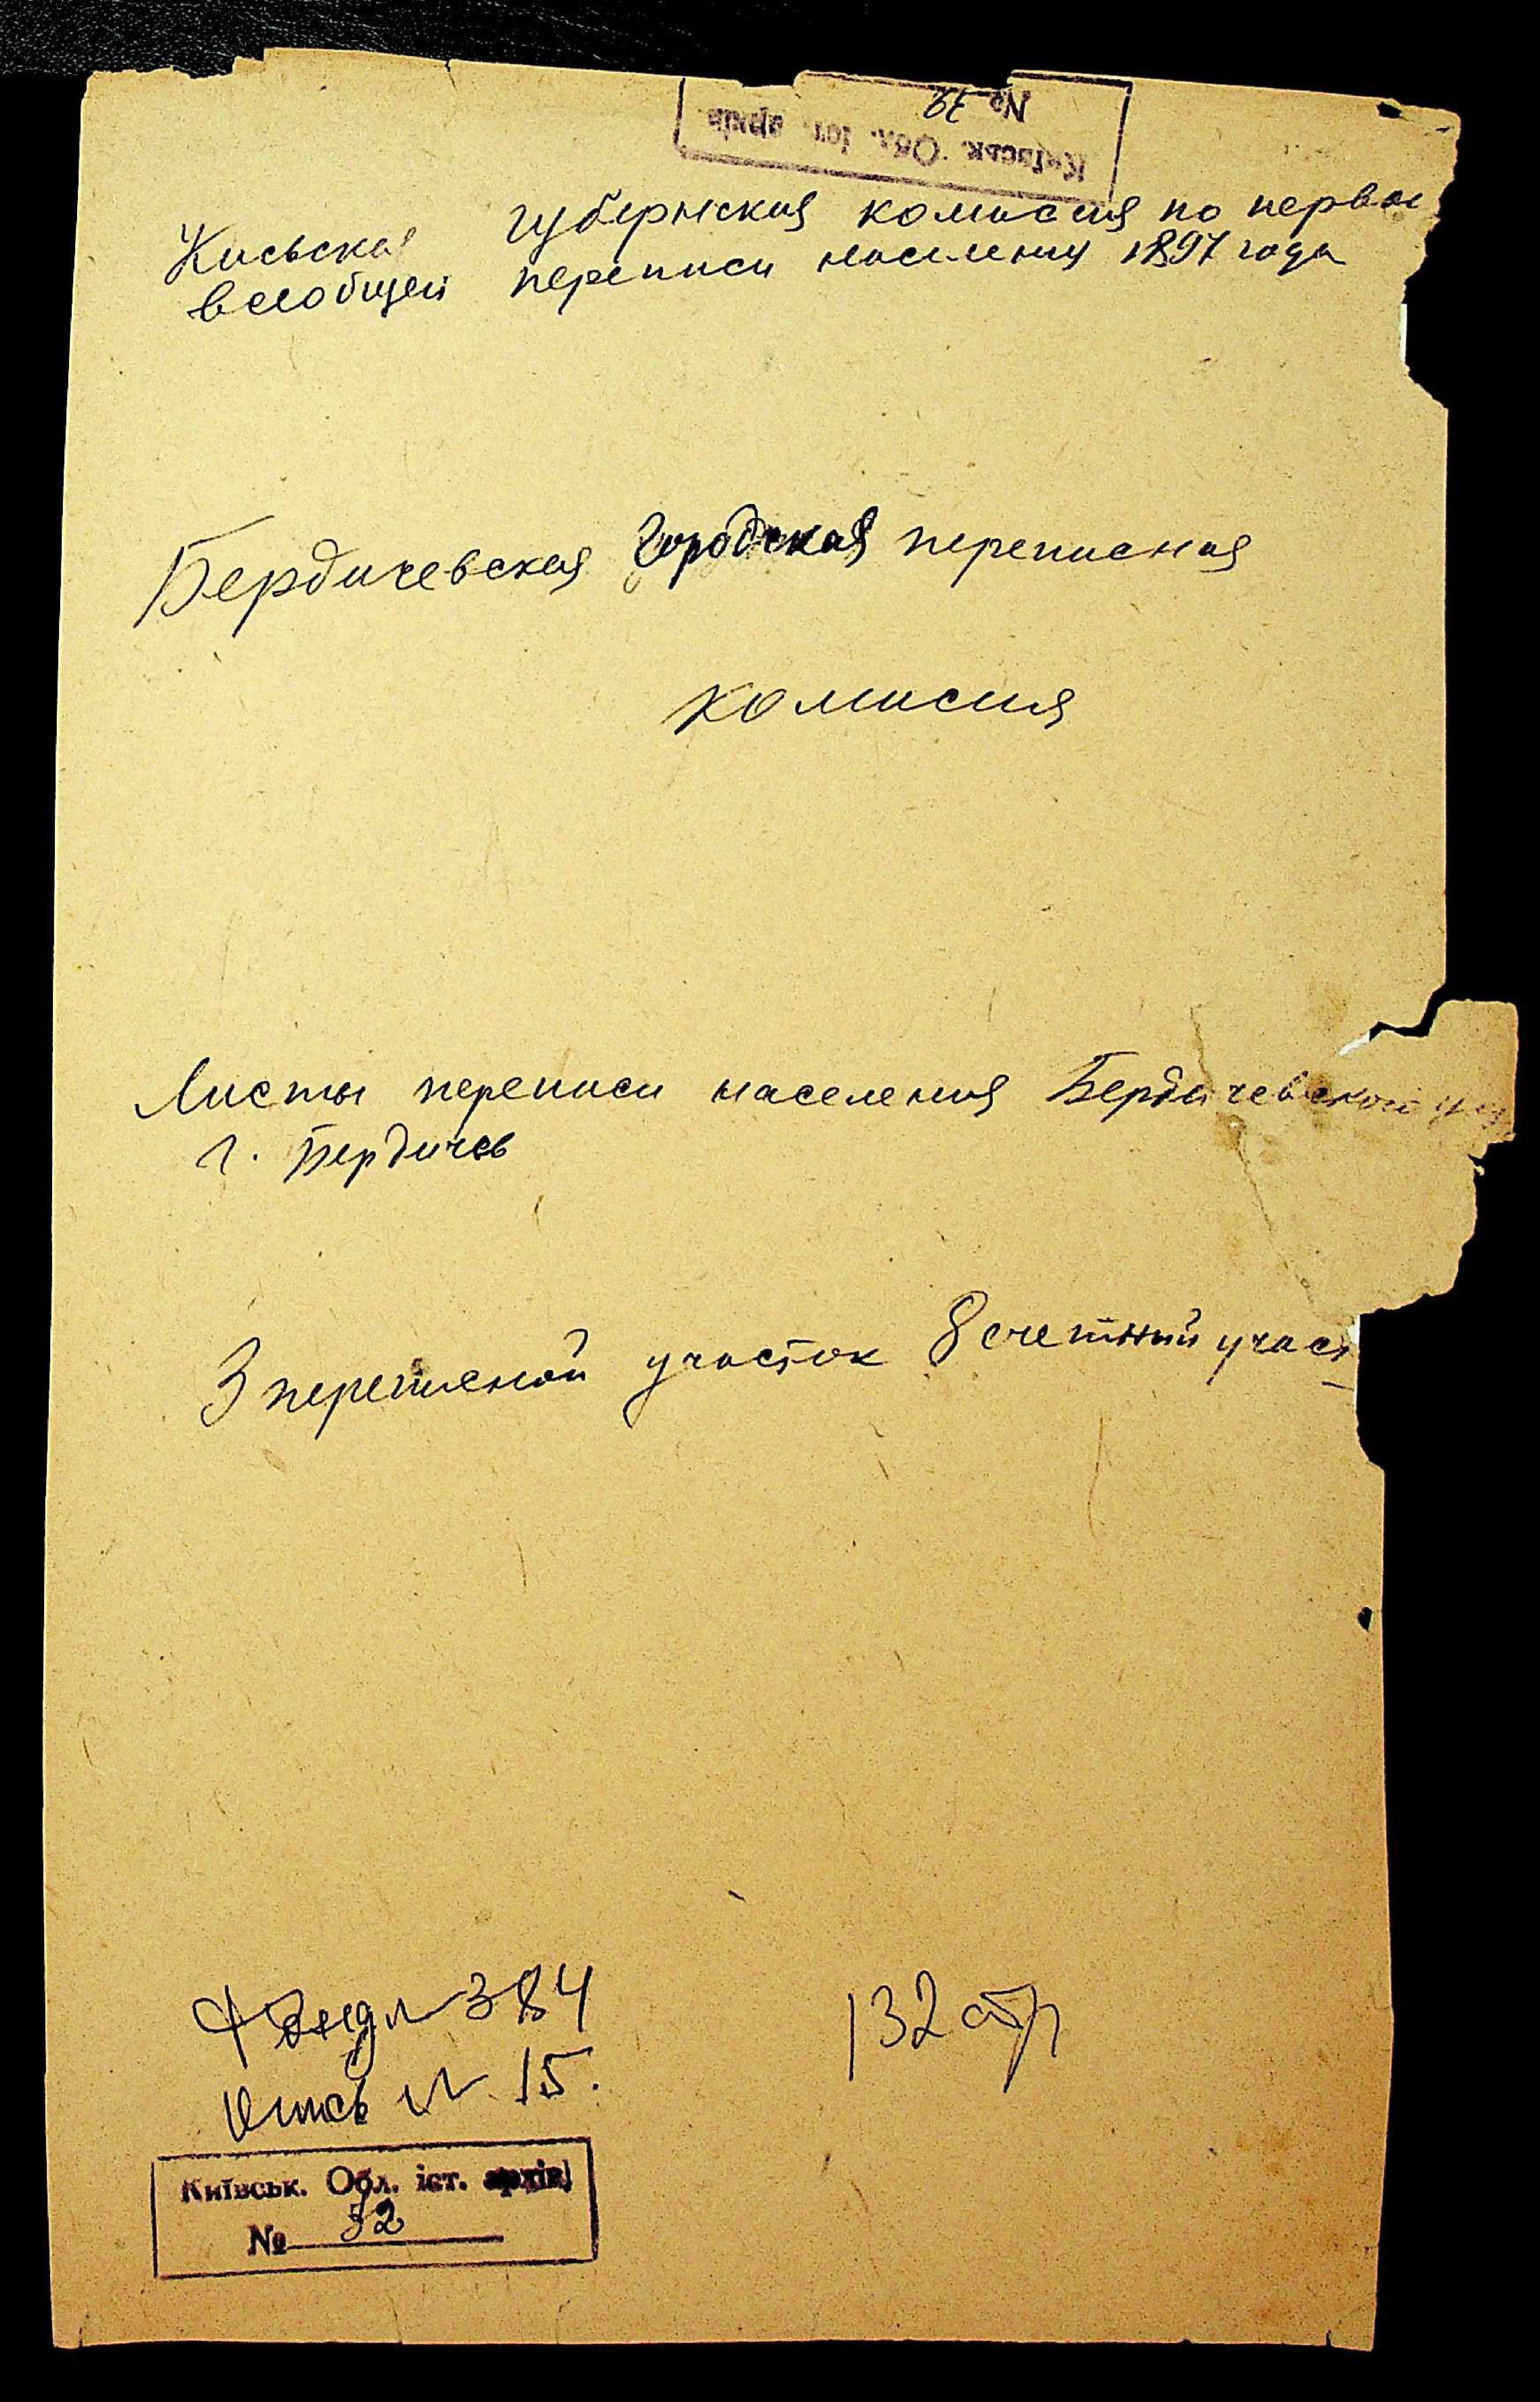 № 79
Київськ. Обл. іст. архів
Киевская губернская комиссия по первой
всеобщей переписи населения 1897 года
Бердичевская Городская переписная
комисия
Листы переписи населения Бердичевской
г. Бердичев
3 переписной участок 8 счетный участ
Фонд № 384
132 стр
Опись № 15.
Київськ. Обл. іст. архів
№ 52